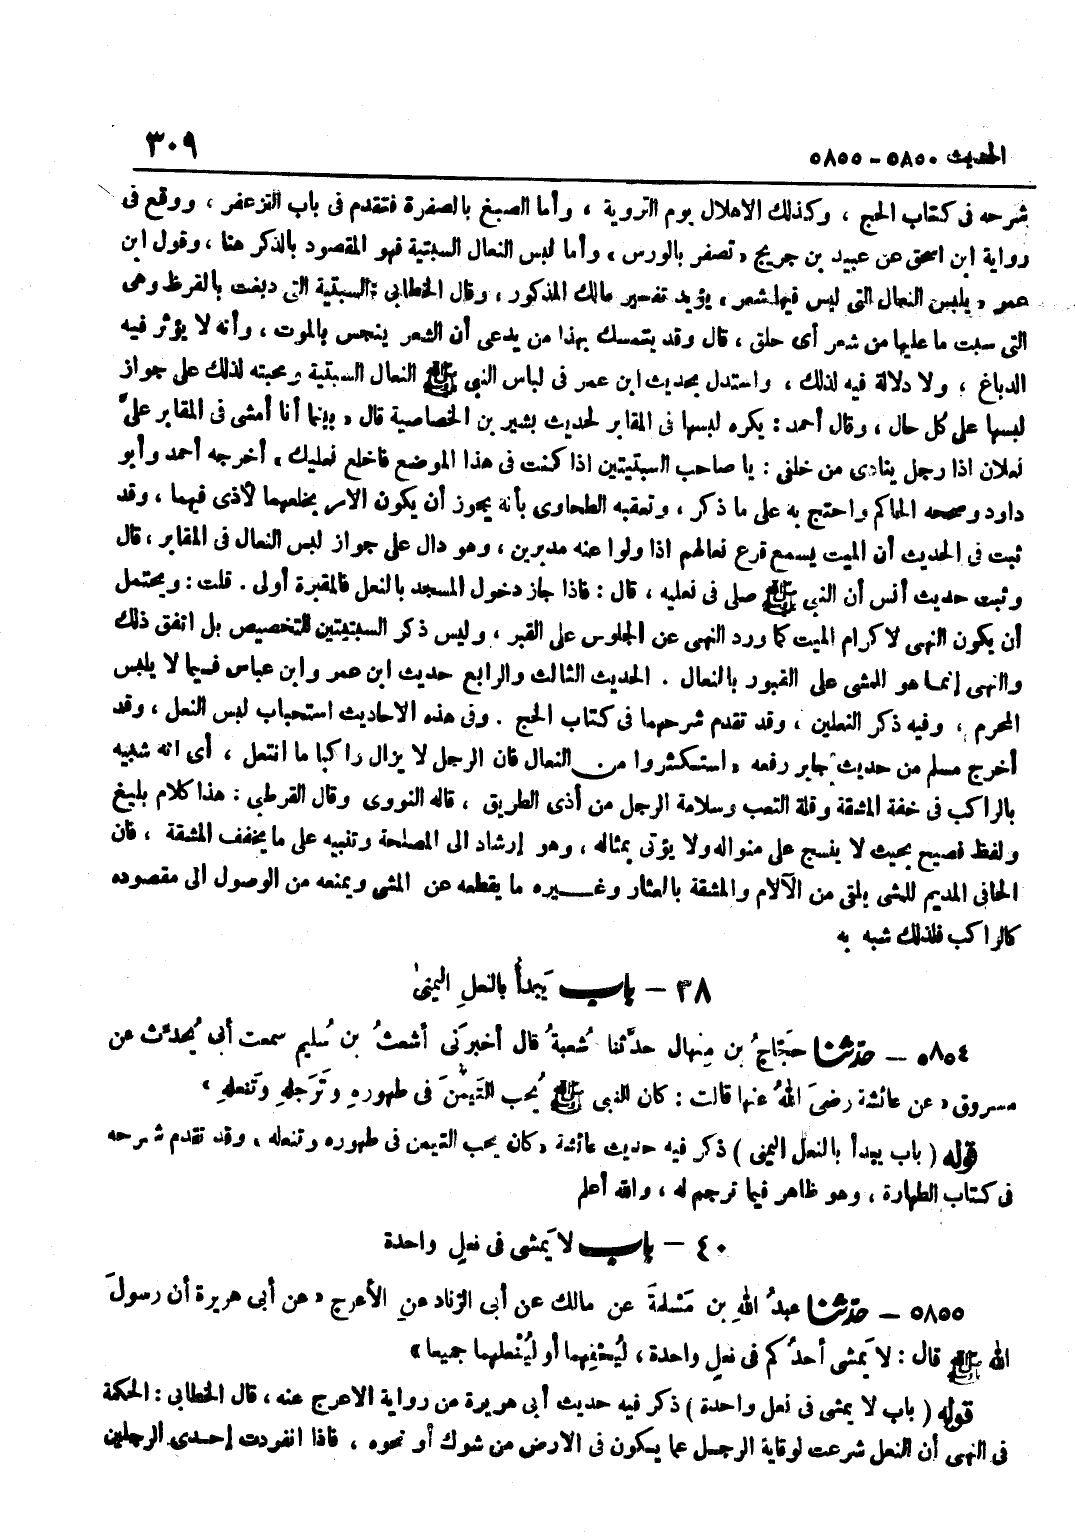 الحديث ٥٨٥٠ - ٥٨٥٥
٣٠٩
شرحه فى كتاب الحج ، وكذلك الاهلال يوم التروية ، وأما الصبغ بالصفرة فتقدم فى باب التزعفر ، ووقع فى
رواية ابن اسحق عن عبيد بن جريج « تصفر بالورس ، وأما لبس النعال السبتية فهو المقصود بالذكر هنا ، وقول ابن
عمر « يلبس النعال التى ليس فيها شعر ، يؤيد تفسير مالك المذكور ، وقال الخطابى : السبتية التى دبغت بالقرظ وهى
التى سبت ما عليها من شعر أى حلق ، قال وقد يتمسك بهذا من يدعى أن الشعر ينجس بالموت ، وأنه لا يؤثر فيه
الدباغ ، ولا دلالة فيه لذلك ، واستدل بحديث ابن عمر فى لباس النبى ﷺ النعال السبتية ومحبته لذلك على جواز
لبسها على كل حال ، وقال أحمد : يكره لبسها فى المقابر لحديث بشير بن الخصاصية قال « بينما أنا أمشى فى المقابر علىَّ
نعلان اذا رجل ينادى من خلفى : يا صاحب السبتيتين اذا كنت فى هذا الموضع فاخلع نعليك ، أخرجه أحمد وأبو
داود وصححه الحاكم واحتج به على ما ذكر ، وتعقبه الطحاوى بأنه يجوز أن يكون الامر بخلعهما لأذى فيهما ، وقد
ثبت فى الحديث أن الميت يسمع قرع نعالهم اذا ولوا عنه مدبرين ، وهو دال على جواز لبس النعال فى المقابر ، قال
وثبت حديث أنس أن النبى ﷺ صلى فى نعليه ، قال : فاذا جاز دخول المسجد بالنعل فالمقبرة أولى . قلت : ويحتمل
أن يكون النهى لاكرام الميت كما ورد النهى عن الجلوس على القبر ، وليس ذكر السبتيتين للتخصيص بل اتفق ذلك
والنهى إنما هو للمشى على القبور بالنعال . الحديث الثالث والرابع حديث ابن عمر وابن عباس فيما لا يلبس
المحرم ، وفيه ذكر النعلين ، وقد تقدم شرحهما فى كتاب الحج . وفى هذه الاحاديث استحباب لبس النعل ، وقد
أخرج مسلم من حديث جابر رفعه « استكثروا من النعال فان الرجل لا يزال راكبا ما انتعل ، أى انه شبيه
بالراكب فى خفة المشقة وقلة التعب وسلامة الرجل من أذى الطريق ، قاله النووى وقال القرطبى : هذا كلام بليغ
ولفظ فصيح بحيث لا ينسج على منواله ولا يؤتى بمثاله ، وهو إرشاد الى المصلحة وتنبيه على ما يخفف المشقة ، فان
الحافى المديم للمشى يلقى من الآلام والمشقة بالعثار وغيره ما يقطعه عن المشى ويمنعه من الوصول الى مقصوده
كالراكب فلذلك شبه به
٣٨ - باب يَبدأ بالنعلِ اليمنىٰ
٥٨٥٤ - حدثنا حجّاجُ بن مِنهال حدَّثنا شُعبةُ قال أخبرَنى أشعثُ بن سُليم سمعت أبى يُحدِّث عن
مسروق « عن عائشة رضىَ اللهُ عنها قالت : كان النبى ﷺ يُحب التيمُّنَ فى طهورهِ وتَرَجلهِ وتَنعلهِ »
قوله ( باب يبدأ بالنعل اليمنى ) ذكر فيه حديث عائشة « كان يحب التيمن فى طهوره وتنعله ، وقد تقدم شرحه
فى كتاب الطهارة ، وهو ظاهر فيما ترجم له ، والله أعلم
٤٠ - باب لا يَمشى فى نعلٍ واحدة
٥٨٥٥ - حدثنا عبدُ اللهِ بن مَسْلمةَ عن مالك عن أبى الزناد عنِ الأعرج « عن أبى هريرة أن رسولَ
الله ﷺ قال : لا يَمشى أحدُكم فى نعلٍ واحدة ، ليُحْفِهما أو ليُنْعلهما جميعا »
قوله ( باب لا يمشى فى نعل واحدة ) ذكر فيه حديث أبى هريرة من رواية الاعرج عنه ، قال الخطابى : الحكمة
فى النهى أن النعل شرعت لوقاية الرجل عما يكون فى الارض من شوك أو نحوه ، فاذا انفردت إحدى الرجلين